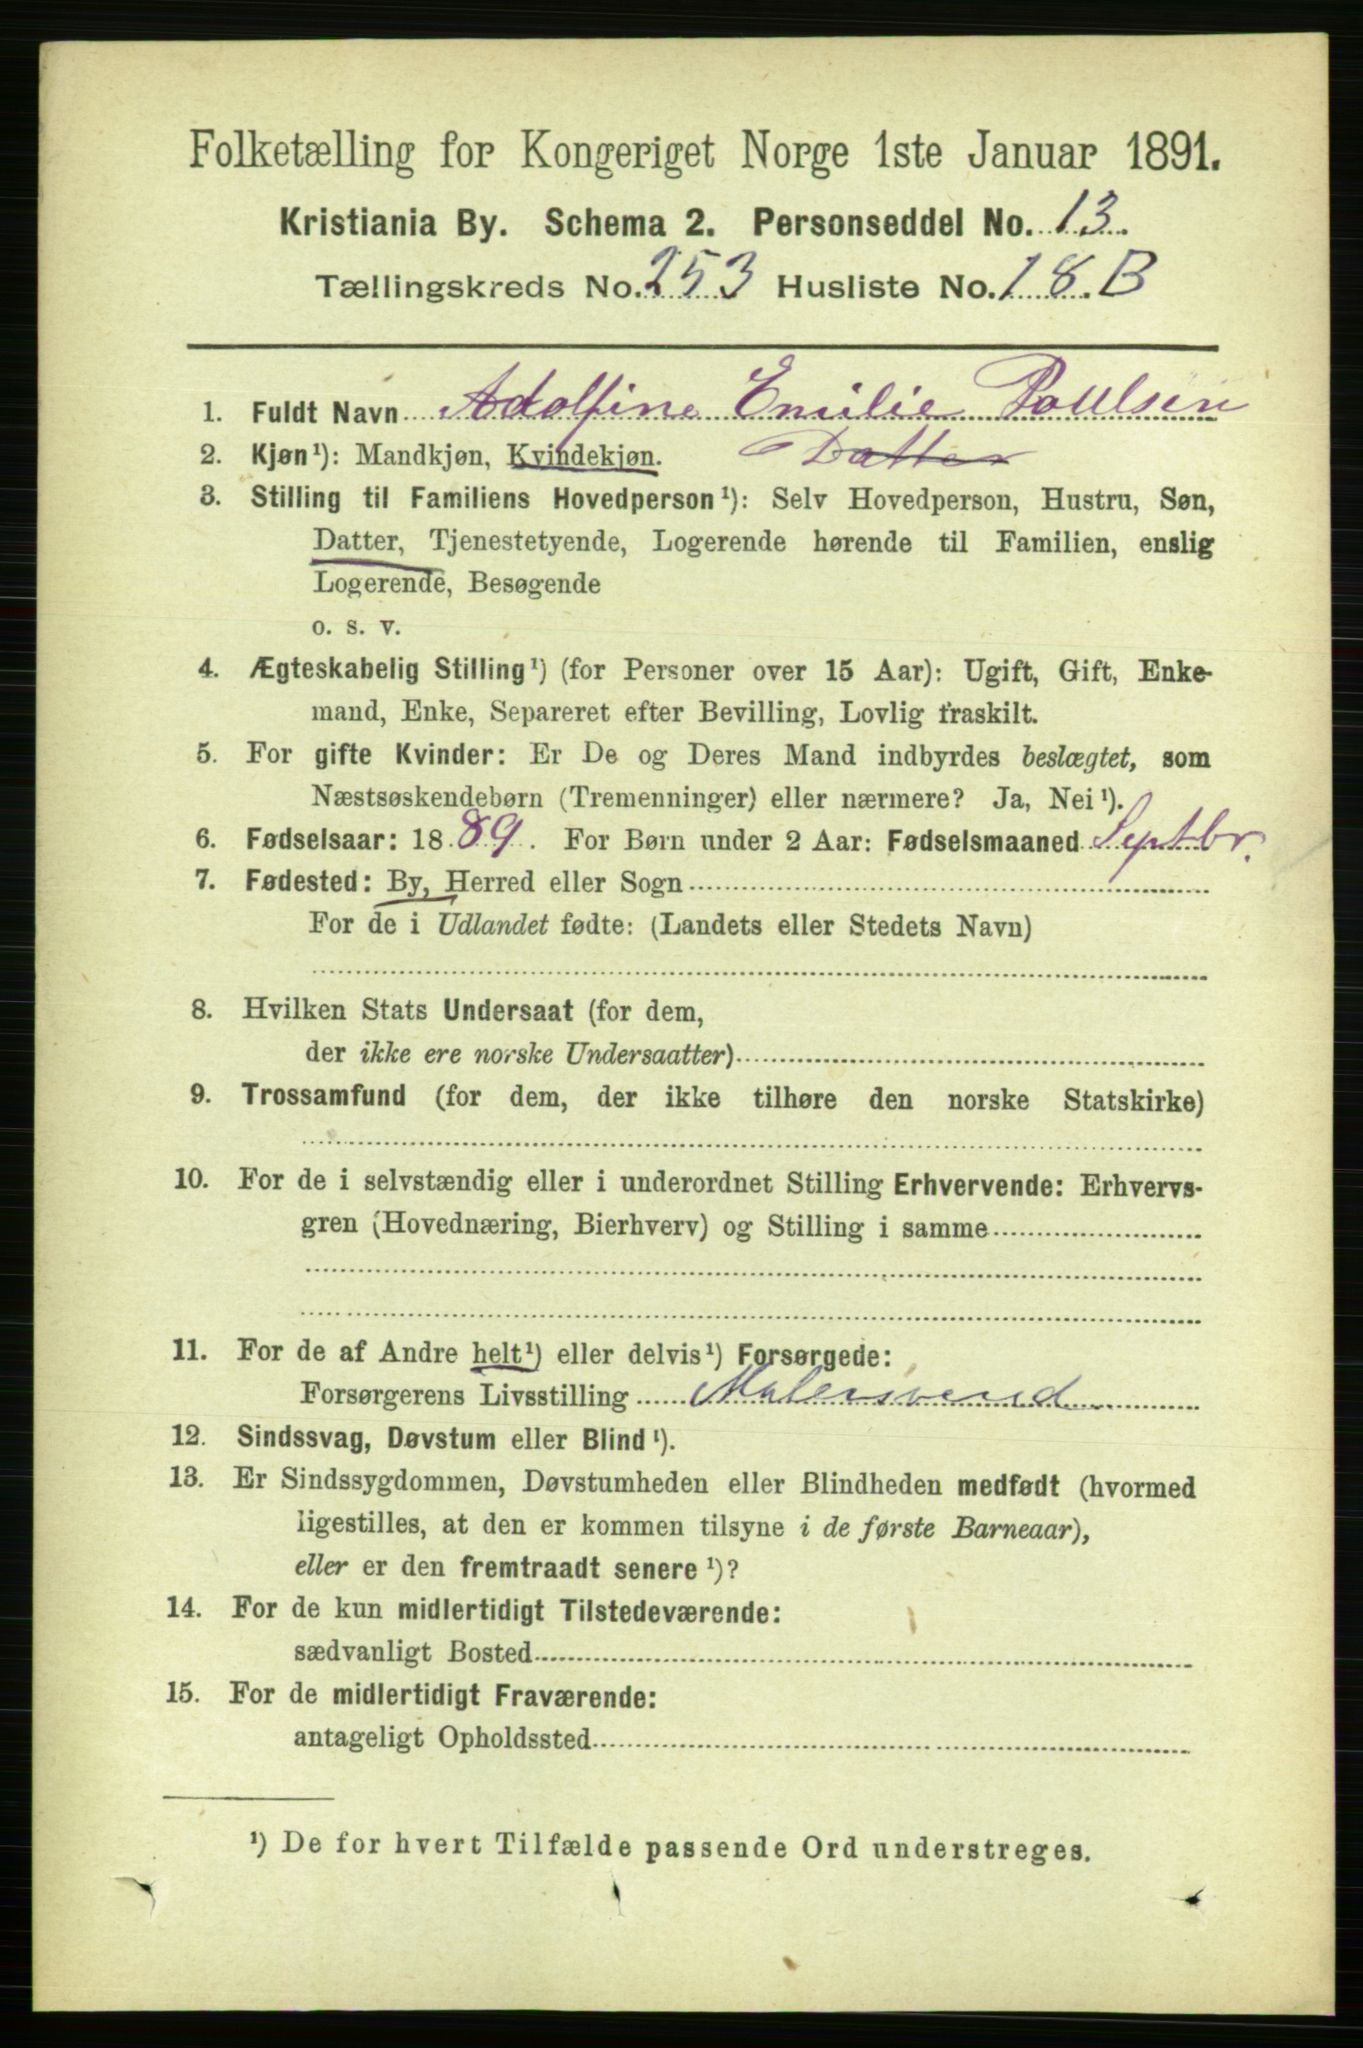 Folketælling for Kongeriget Norge 1ste Januar 1891.
Kristiania By. Schema 2. Personseddel No. 13.
Tællingskreds No. 253 Husliste No. 18.B
1. Fuldt Navn Adolfine Emilie Poulsen
2. Kjøn¹): Mandkjøn, Kvindekjøn. Datter
3. Stilling til Familiens Hovedperson¹): Selv Hovedperson, Hustru, Søn,
Datter, Tjenestetyende, Logerende hørende til Familien, enslig
Logerende, Besøgende
o. s. v.
4. Ægteskabelig Stilling¹) (for Personer over 15 Aar): Ugift, Gift, Enke-
mand, Enke, Separeret efter Bevilling, Lovlig fraskilt.
5. For gifte Kvinder: Er De og Deres Mand indbyrdes beslægtet, som
Næstsøskendebørn (Tremenninger) eller nærmere? Ja, Nei¹).
6. Fødselsaar: 1889. For Børn under 2 Aar: Fødselsmaaned Septbr.
7. Fødested: By, Herred eller Sogn
For de i Udlandet fødte: (Landets eller Stedets Navn)
8. Hvilken Stats Undersaat (for dem,
der ikke ere norske Undersaatter)
9. Trossamfund (for dem, der ikke tilhøre den norske Statskirke)
10. For de i selvstændig eller i underordnet Stilling Erhvervende: Erhvervs-
gren (Hovednæring, Bierhverv) og Stilling i samme
11. For de af Andre helt¹) eller delvis¹) Forsørgede:
Forsørgerens Livsstilling Malersvend
12. Sindssvag, Døvstum eller Blind¹).
13. Er Sindssygdommen, Døvstumheden eller Blindheden medfødt (hvormed
ligestilles, at den er kommen tilsyne i de første Barneaar),
eller er den fremtraadt senere¹)?
14. For de kun midlertidigt Tilstedeværende:
sædvanligt Bosted
15. For de midlertidigt Fraværende:
antageligt Opholdssted
¹) De for hvert Tilfælde passende Ord understreges.